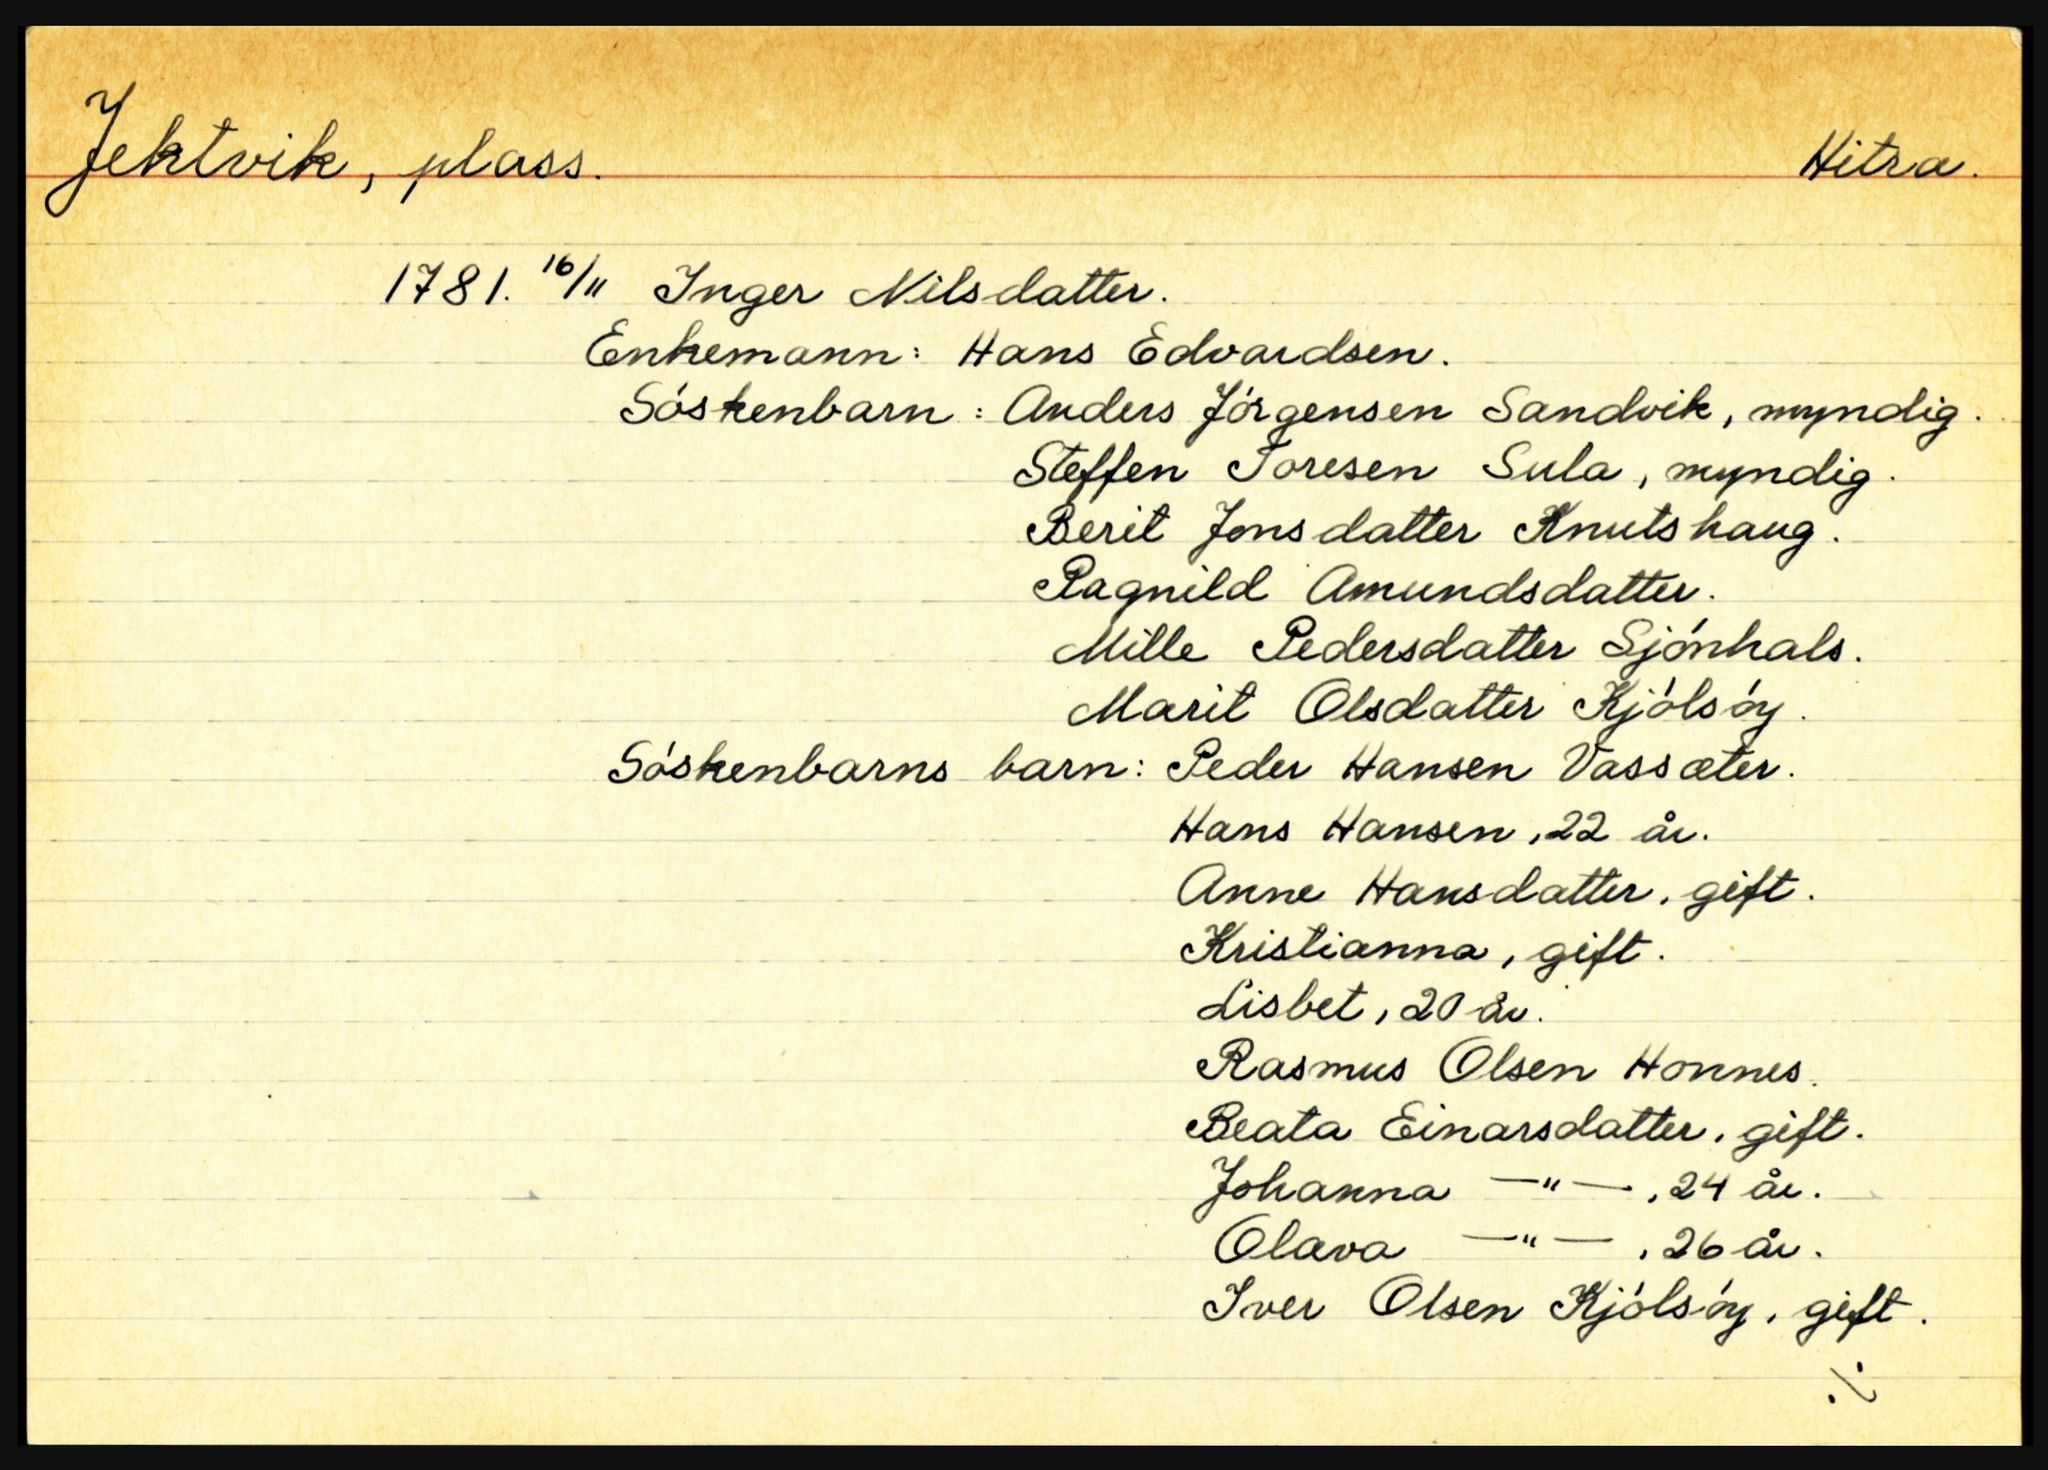 Jektvik, plass. Hitra.
1781. 16/11 Inger Nilsdatter.
Enkemann: Hans Edvardsen.
Sóskenbarn: Anders Jórgensen Sandvik, myndig.
Steffen Toresen Sula, myndig.
Berit Jonsdatter Knutshaug.
Ragnild Amundsdatter.
Mille Pedersdatter Sjónhals.
Marit Olsdatter Kjólsóy.
Sóskenbarns barn: Peder Hansen Vassæter.
Hans Hansen, 22 år.
Anne Hansdatter, gift.
Kristianna, gift.
Lisbet, 20 år.
Rasmus Olsen Honnes.
Beata Einarsdatter, gift.
Johanna —"—, 24 år.
Olava —"—, 26 år.
Iver Olsen Kjólsóy, gift.
./.